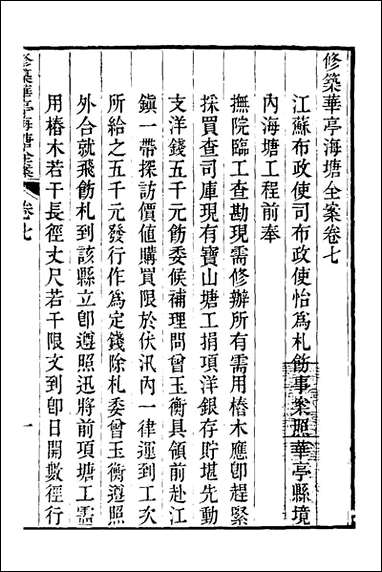 修築華亭海塘全案卷七
江蘇布政使司布政使怡為札飭事案照華亭縣境
內海塘工程前奉
撫院臨工查勘現需修辦所有需用樁木應卽趕緊
採買查司庫現有寶山塘工捐項洋銀存貯堪先動
支洋錢五千元飭委候補理問曾玉衡具領前赴江
鎭一帶探訪價値購買限於伏汛內一律運到工次
所給之五千元發行作為定錢除札委曾玉衡遵照
外合就飛飭札到該縣立卽遵照迅將前項塘工需
用樁木若干長徑丈尺若干限文到卽日開數徑行
修築華亭海塘全案
卷七
一